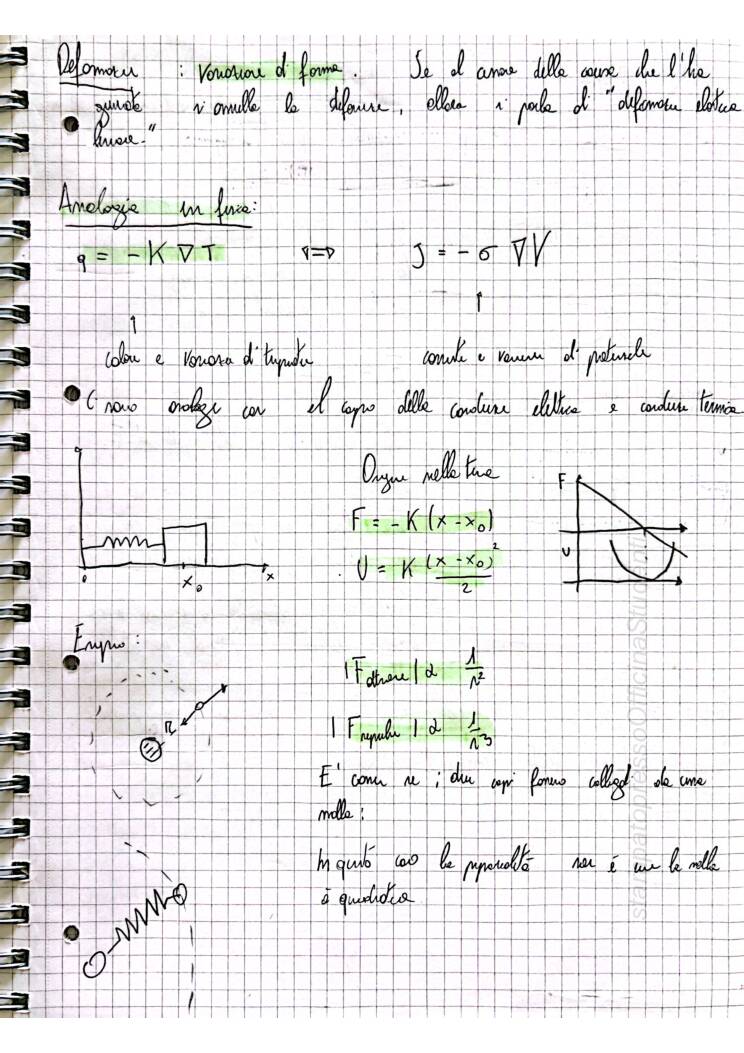 Deformazione : Variazione di forma. Se al cessare della causa che l'ha
si annulla la deformazione, allora si parla di "deformazione elastica
lineare."
Analogia in fisica:
q = -K ∇T ⇐⇒ J = -σ ∇V
↑ ↑
calore e variazione di temperatura corrente e variazione di potenziale
Ci sono analogie con il campo della conduzione elettrica e conduzione termica
Origine nella
F = -K (x - x₀)
U = K (x - x₀)²/2
0 x₀ x
F
U
Esempio:
|F attrazione| α 1/r²
|F repulsione| α 1/r³
R
E' come se i due corpi fossero collegati da una
molla:
In questo caso la proporzionalità non è la molla
è quadratica
stampatopressoOfficinaStudenti